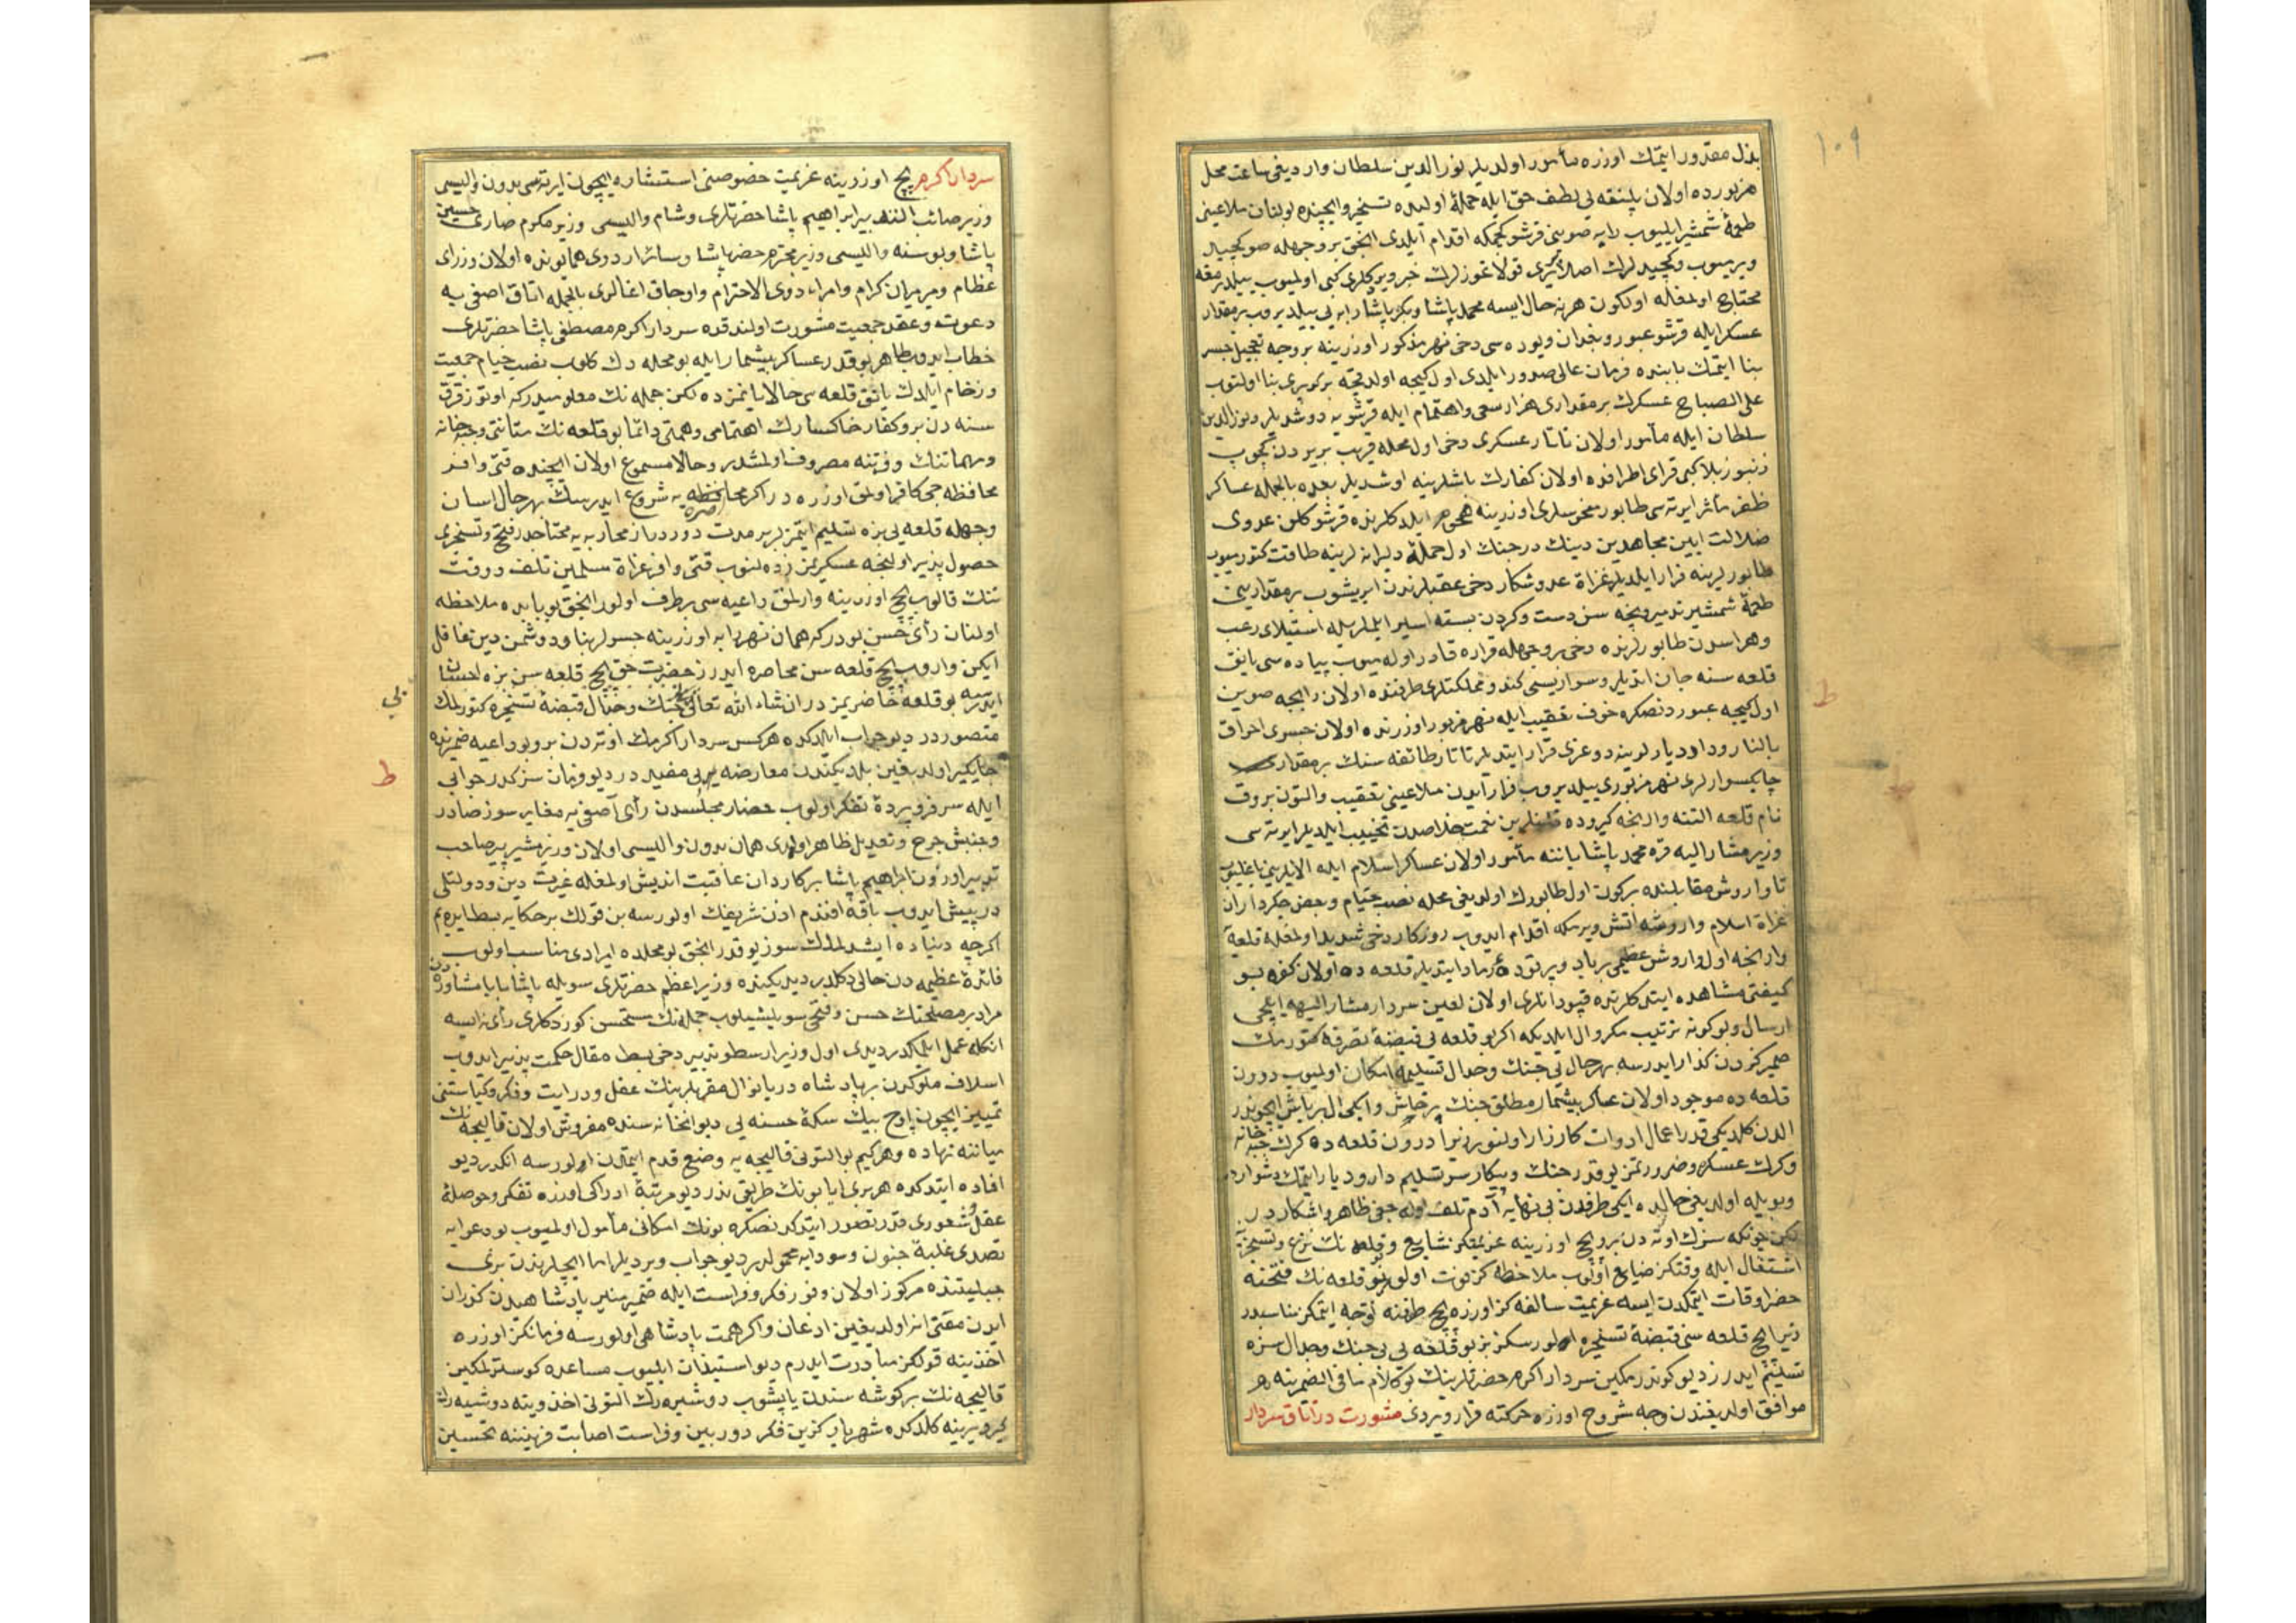 ١٠٩
بذل مقدور ايتمك اوزره مأمور اولديلر نور الدين سلطان وارديغى ساعت محل
مزبورده اولان پلنقه يى لطف حق ايله حملهٔ اوليده تسخير وايچنده بولنان ملاعينى
طعمهٔ شمشير ايليوب رابه صوينى قرشو كچمكه اقدام ايلدى انجق بر وجهله صو كچيد
ويرميوب
محتاج اولمغله اولكون هر نه حال ايسه محمد پاشا وبكر پاشا رابه يى بيلديروب بر مقدار
عسكر ايله قرشو عبور وبغدان ويوده سى دخى نهر مذكور اوزرينه بر وجه تعجيل جسر
بنا ايتمك بابنده فرمان عالى صدور ايلدى اول كيجه اولدقچه بر كوپرى بنا اولنوب
على الصباح عسكرك بر مقدارى هزار سعى واهتمام ايله قرشويه دوشديلر ونور الدين
سلطان ايله مأمور اولان تاتار عسكرى دخى اول محله قريب بر يردن كچوب
زنبور بلا كبى قراى اطرافده اولان كفارك باشلرينه اوشديلر بعده بالجمله عساكر
ظفر مأثر ايرته سى طابور منحوسلرى اوزرينه هجوم ايلدكلرنده قرشو كلن عدوى
ضلالت آيين مجاهدين دينك درجنك اول حملهٔ دليرانه لرينه طاقت كتورميوب
طابورلرينه فرار ايلديلر غزاة عدو شكار دخى عقبلرندن ايريشوب بر مقدارينى
طعمهٔ شمشير تدمير ونيجه سن دست وكردن بسته اسير ايلملريله استيلاى رعب
وهراسدن طابورلرنده دخى بر وجهله قراره قادر اوله ميوب پياده سى يانق
قلعه سنه جان اتديلر وسواريسى كندو مملكتلرى طرفنده اولان رابجه صوين
اول كيجه عبور دنصكره خوف تعقيب ايله نهر مزبور اوزرنده اولان جسرى احراق
بالنار ودار ديارلرينه دوغرى فرار ايتديلر تاتار طائفه سنك بر مقدارى
چابكسوارلرى نهر مزبورى بيلديروب فرار ايدن ملاعينى تعقيب والتون بروق
نام قلعه التنه وارنجه كيروده
وزير مشار اليه قره محمد پاشا ياننه مأمور اولان عساكر اسلام ايله الايلرينى باغليوب
تا واروش مقابلنده بركون اول طابورك اولديغى محله نصب خيام وبعض جكرداران
غزاة اسلام واروشه اتش ويرمكه اقدام ايدوب روزكار دخى شديد اولمغله قلعهٔ
وارنجه اول واروش عظيمى بر باد وبر تودهٔ رماد ايتديلر قلعه ده اولان كفره بو
كيفيتى مشاهده ايتدكلرنده قپودانلرى اولان لعين سردار مشار اليهه ايلچى
ارسال وبو كونه ترتيب مكر وآل ايلديكه اكر بو قلعه يى قبضهٔ تصرفه كتورمك
ضميركزدن كذار ايدرسه بهر حال بى جنك وجدال تسليمه امكان اوليوب درون
قلعه ده موجود اولان عساكر بيشمار مطلق جنك پرخاش
الدن كلديكى قدر اعمال ادوات كارزار اولنور زيرا درون قلعه ده كرك جبه خانه
وكرك عسكره ضرورتمز يوقدر جنك وپيكارسز تسليم دار وديار ايتمك دشواردر
وبويله اولديغى حالده ايكى طرفدن بى نهايه آدم تلف اوله جغى ظاهر واشكاردر
لكن چونكه سزك اوته دن برو بچ اوزرينه عزيمتكز شايع وقلعه نك نزع وتسخيرنه
اشتغال ايله وقتكز ضايع اولوب ملاحظه كز فوت اولور بو قلعه نك فتحنه
حضر اوقات ايتمكدن ايسه عزيمت سالفه كز اوزره بچ طرفنه توجه ايتمكز مناسبدر
زيرا بچ قلعه سنى قبضهٔ تسخيره الورسكز بز بو قلعه يى بى جنك وجدال سزه
تسليم ايدرز ديو كوندرمكين سردار اكرم حضرتلرينك بو كلام مافى الضميرينه
موافق اولديغندن وجه مشروح اوزره حركته قرار ويردى مشورت در اتاق سردار
سردار اكرم بچ اوزرينه عزيمت خصوصنى استشاره ايچون ايرته سى بدون واليسى
وزير صائب التدبير ابراهيم پاشا حضرتلرى وشام واليسى وزير مكرم صارى حسين
پاشا وبوسنه واليسى وزير محترم خضر پاشا وسائر اردوى همايونده اولان وزراى
عظام وميرميران كرام وامراء ذوى الاحترام واوجاق اغالرى بالجمله اتاق آصفى يه
دعوت وعقد جمعيت مشورت اولندقده سردار اكرم مصطفى پاشا حضرتلرى
خطاب ايدوب ظاهر بو قدر عساكر بيشمار ايله بو محله دك كلوب نصب خيام جمعيت
وزخام ايلدك يانق قلعه سى حالا يانمزده لكن جمله نك معلوميدركه اوتوز قرق
سنه دن برو كفار خاكسارك اهتمامى وهمتى دائما بو قلعه نك متانتى وجبه خانه
ومهماتنك وفرتنه مصروف اولمشدر وحالا مسموع اولان ايچنده قتى وافر
محافظه جى كافر اولمق اوزره در اكر محاصره يه شروع ايدرسك بهر حال اسان
وجهله قلعه يى بزه تسليم ايتمزلر بر مدت دور دراز محاربه يه محتاجدر فتح وتسخيرى
حصول پذير اولنجه عسكريمز زده لنوب قتى وافر غزاة مسلمين تلف ووقت
تنك قالوب بچ اوزرينه وارلمق داعيه سى برطرف اولور انجق بو بابده ملاحظه
اولنان رأى حسن بودركه همان نهر رابه اوزرينه جسرلر بنا ودشمن دين غافل
ايكن واروب بچ قلعه سن محاصره ايدرز حضرت حق بچ قلعه سن بزه احسان
ايدرسه بو قلعه حاضريمزدر ان شاء الله تعالى بى جنك وجدال قبضهٔ تسخيره كتورلمك
متصوردر ديو جواب ايلدكده هركس سردار اكرمك اوته دن برو بو داعيه ضميرنده
جايكير اولديغين بلديكندن معارضه
ايله سر فرو بردهٔ تفكر اولوب حضار مجلسدن رأى آصفى يه مغاير سوز صادر
وجنبش جرح وتعديل ظاهر اولمدى همان بدون واليسى اولان وزير مشير پير صاحب
تدبير اوزون ابراهيم پاشا بر كاردان عاقبت انديش اولمغله غيرت دين ودولتى
در پيش ايدوب باقه افندم اذن شريفك اولورسه بن قولك بر حكايه بسط ايده يم
اكرچه دنياده ايشدلمدك سوز يوقدر انجق بو محلده ايرادى مناسب اولوب
فائدهٔ عظيمه دن خالى دكلدر ديديكنده وزير اعظم حضرتلرى سويله پاشا بابا مشاوره دن
مراد بر مصلحتك حسن وقبحى سويلشيلوب جمله نك مستحسن كوردكلرى رأى نه ايسه
انكله عمل ايلمكدر ديدى اول وزير ارسطو تدبير دخى بسط مقال حكمت پذير ايدوب
اسلاف ملوكدن بر پادشاه دريا نوال مقربلرينك عقل ودرايت وفكر وكياستنى
تمييز ايچون اوچ بيك سكهٔ حسنه يى ديوانخانه سنده مفروش اولان قاليچه نك
مياننه نهاده وهر كيم بو التونى قاليچه يه وضع قدم ايتمدن الورسه انكدر ديو
افاده ايتدكده هر برى ايا بونك طريقى ندر ديو مرتبهٔ ادراكى اوزره تفكر وحوصلهٔ
عقل وشعورى قدر تصور ايتدكدنصكره بونك امكانى مأمول اولميوب بو دعوايه
تصدى غلبهٔ جنون وسودايه محمولدر ديو جواب ويرديلر اما ايچلرندن برى
جبليتنده مركوز اولان وفور فكر وفراست ايله ضمير منير پادشاهيدن كذران
ايدن معنى نه اولديغين اذعان واكر همت پادشاهى اولورسه فرمانكز اوزره
اخذينه قولكز مبادرت ايدرم ديو استيذان ايليوب مساعده كوسترلمكين
قاليچه نك بر كوشه سندن ياپشوب دوشيره رك التونى اخذ وينه دوشيه رك
كيرو يرينه كلدكده شهريار كزين فكر دوربين وفراست اصابت قرينينه تحسين
ط
بى
ط